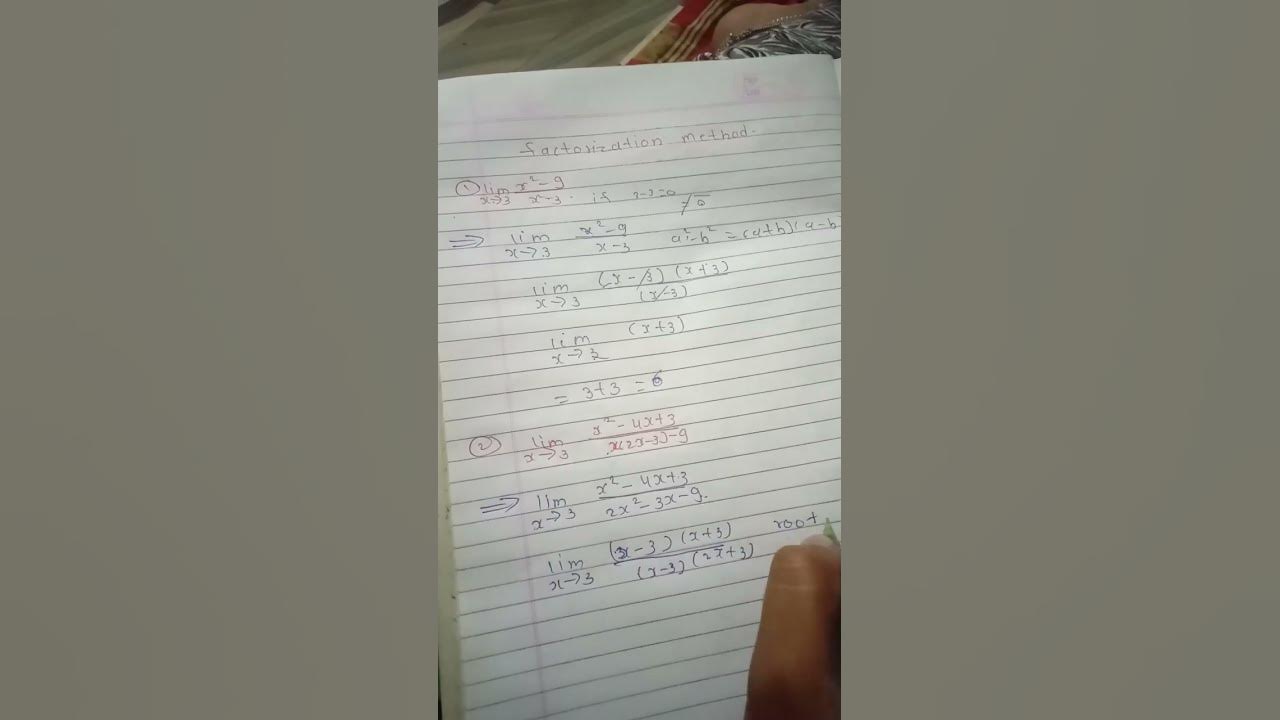 factorization method.
① lim x→3 x²-9 / x²-3. if 3-3=0
⇒ lim x→3 x²-9 / x-3 a²-b² = (a+b)(a-b
lim x→3 (x-3) (x+3) / (x-3)
lim x→3 (x+3)
= 3+3 = 6
② lim x→3 x²-4x+3 / x(2x-3)-9
⇒ lim x→3 x²-4x+3 / 2x²-3x-9.
lim x→3 (x-3) (x+3) / (x-3) (2x+3) root